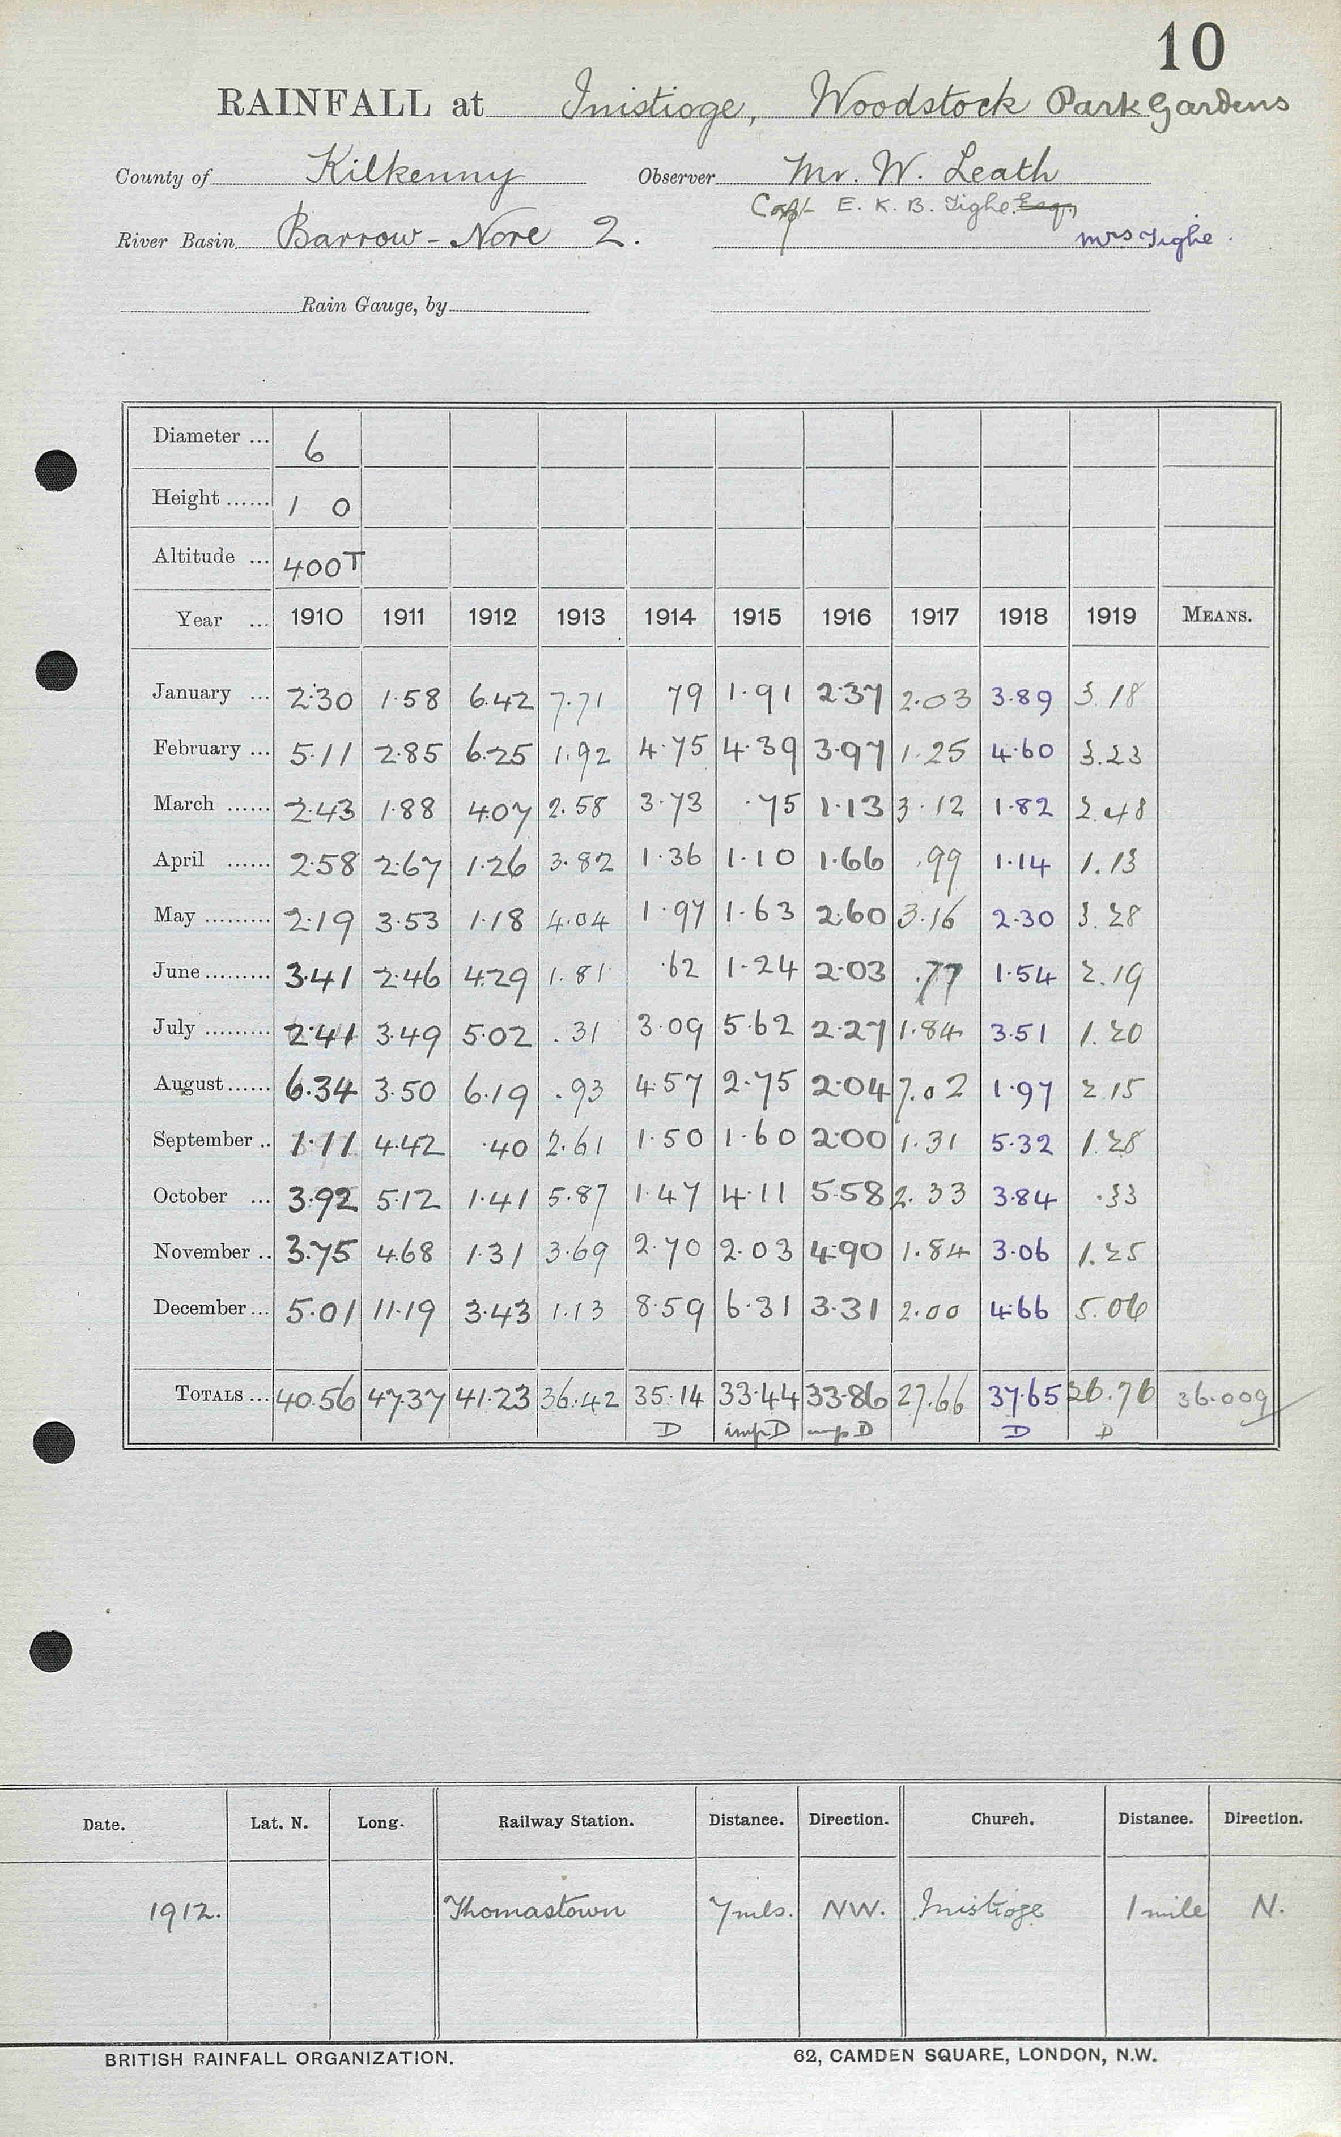 10
RAINFALL at Inistioge, Woodstock Park Gardens
County of Kilkenny Observer Mr. W. Leath
Capt E. K. B. Tighe Esq,
River Basin Barrow - Nore 2. Mrs Tighe
Rain Gauge, by
Diameter ... 6
Height ...... 1 0
Altitude ... 400T
Year ... 1910 1911 1912 1913 1914 1915 1916 1917 1918 1919 MEANS.
January ... 2.30 1.58 6.42 7.71 79 1.91 2.37 2.03 3.89 3.18
February ... 5.11 2.85 6.25 1.92 4.75 4.39 3.97 1.25 4.60 3.23
March ...... 2.43 1.88 4.07 2.58 3.73 .75 1.13 3.12 1.82 2.48
April ...... 2.58 2.67 1.26 3.82 1.36 1.10 1.66 .99 1.14 1.13
May ......... 2.19 3.53 1.18 4.04 1.97 1.63 2.60 3.16 2.30 3.28
June ......... 3.41 2.46 4.29 1.81 .62 1.24 2.03 .77 1.54 2.19
July ......... 2.41 3.49 5.02 .31 3.09 5.62 2.27 1.84 3.51 1.20
August ...... 6.34 3.50 6.19 .93 4.57 2.75 2.04 7.02 1.97 2.15
September .. 1.11 4.42 .40 2.61 1.50 1.60 2.00 1.31 5.32 1.28
October ... 3.92 5.12 1.41 5.87 1.47 4.11 5.58 2.33 3.84 .33
November .. 3.75 4.68 1.31 3.69 2.70 2.03 4.90 1.84 3.06 1.25
December ... 5.01 11.19 3.43 1.13 8.59 6.31 3.31 2.00 4.66 5.06
TOTALS ... 40.56 47.37 41.23 36.42 35.14 33.44 33.86 27.66 37.65 26.76 36.009
D imp D imp D D D
Date. Lat. N. Long. Railway Station. Distance. Direction. Church. Distance. Direction.
1912. Thomastown 7 mls. NW. Inistioge 1 mile N.
BRITISH RAINFALL ORGANIZATION. 62, CAMDEN SQUARE, LONDON, N.W.